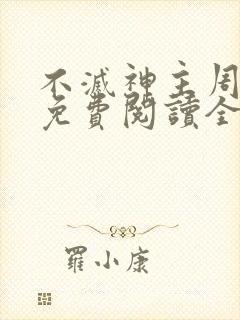 不滅神主周
免費閱讀全
羅小康